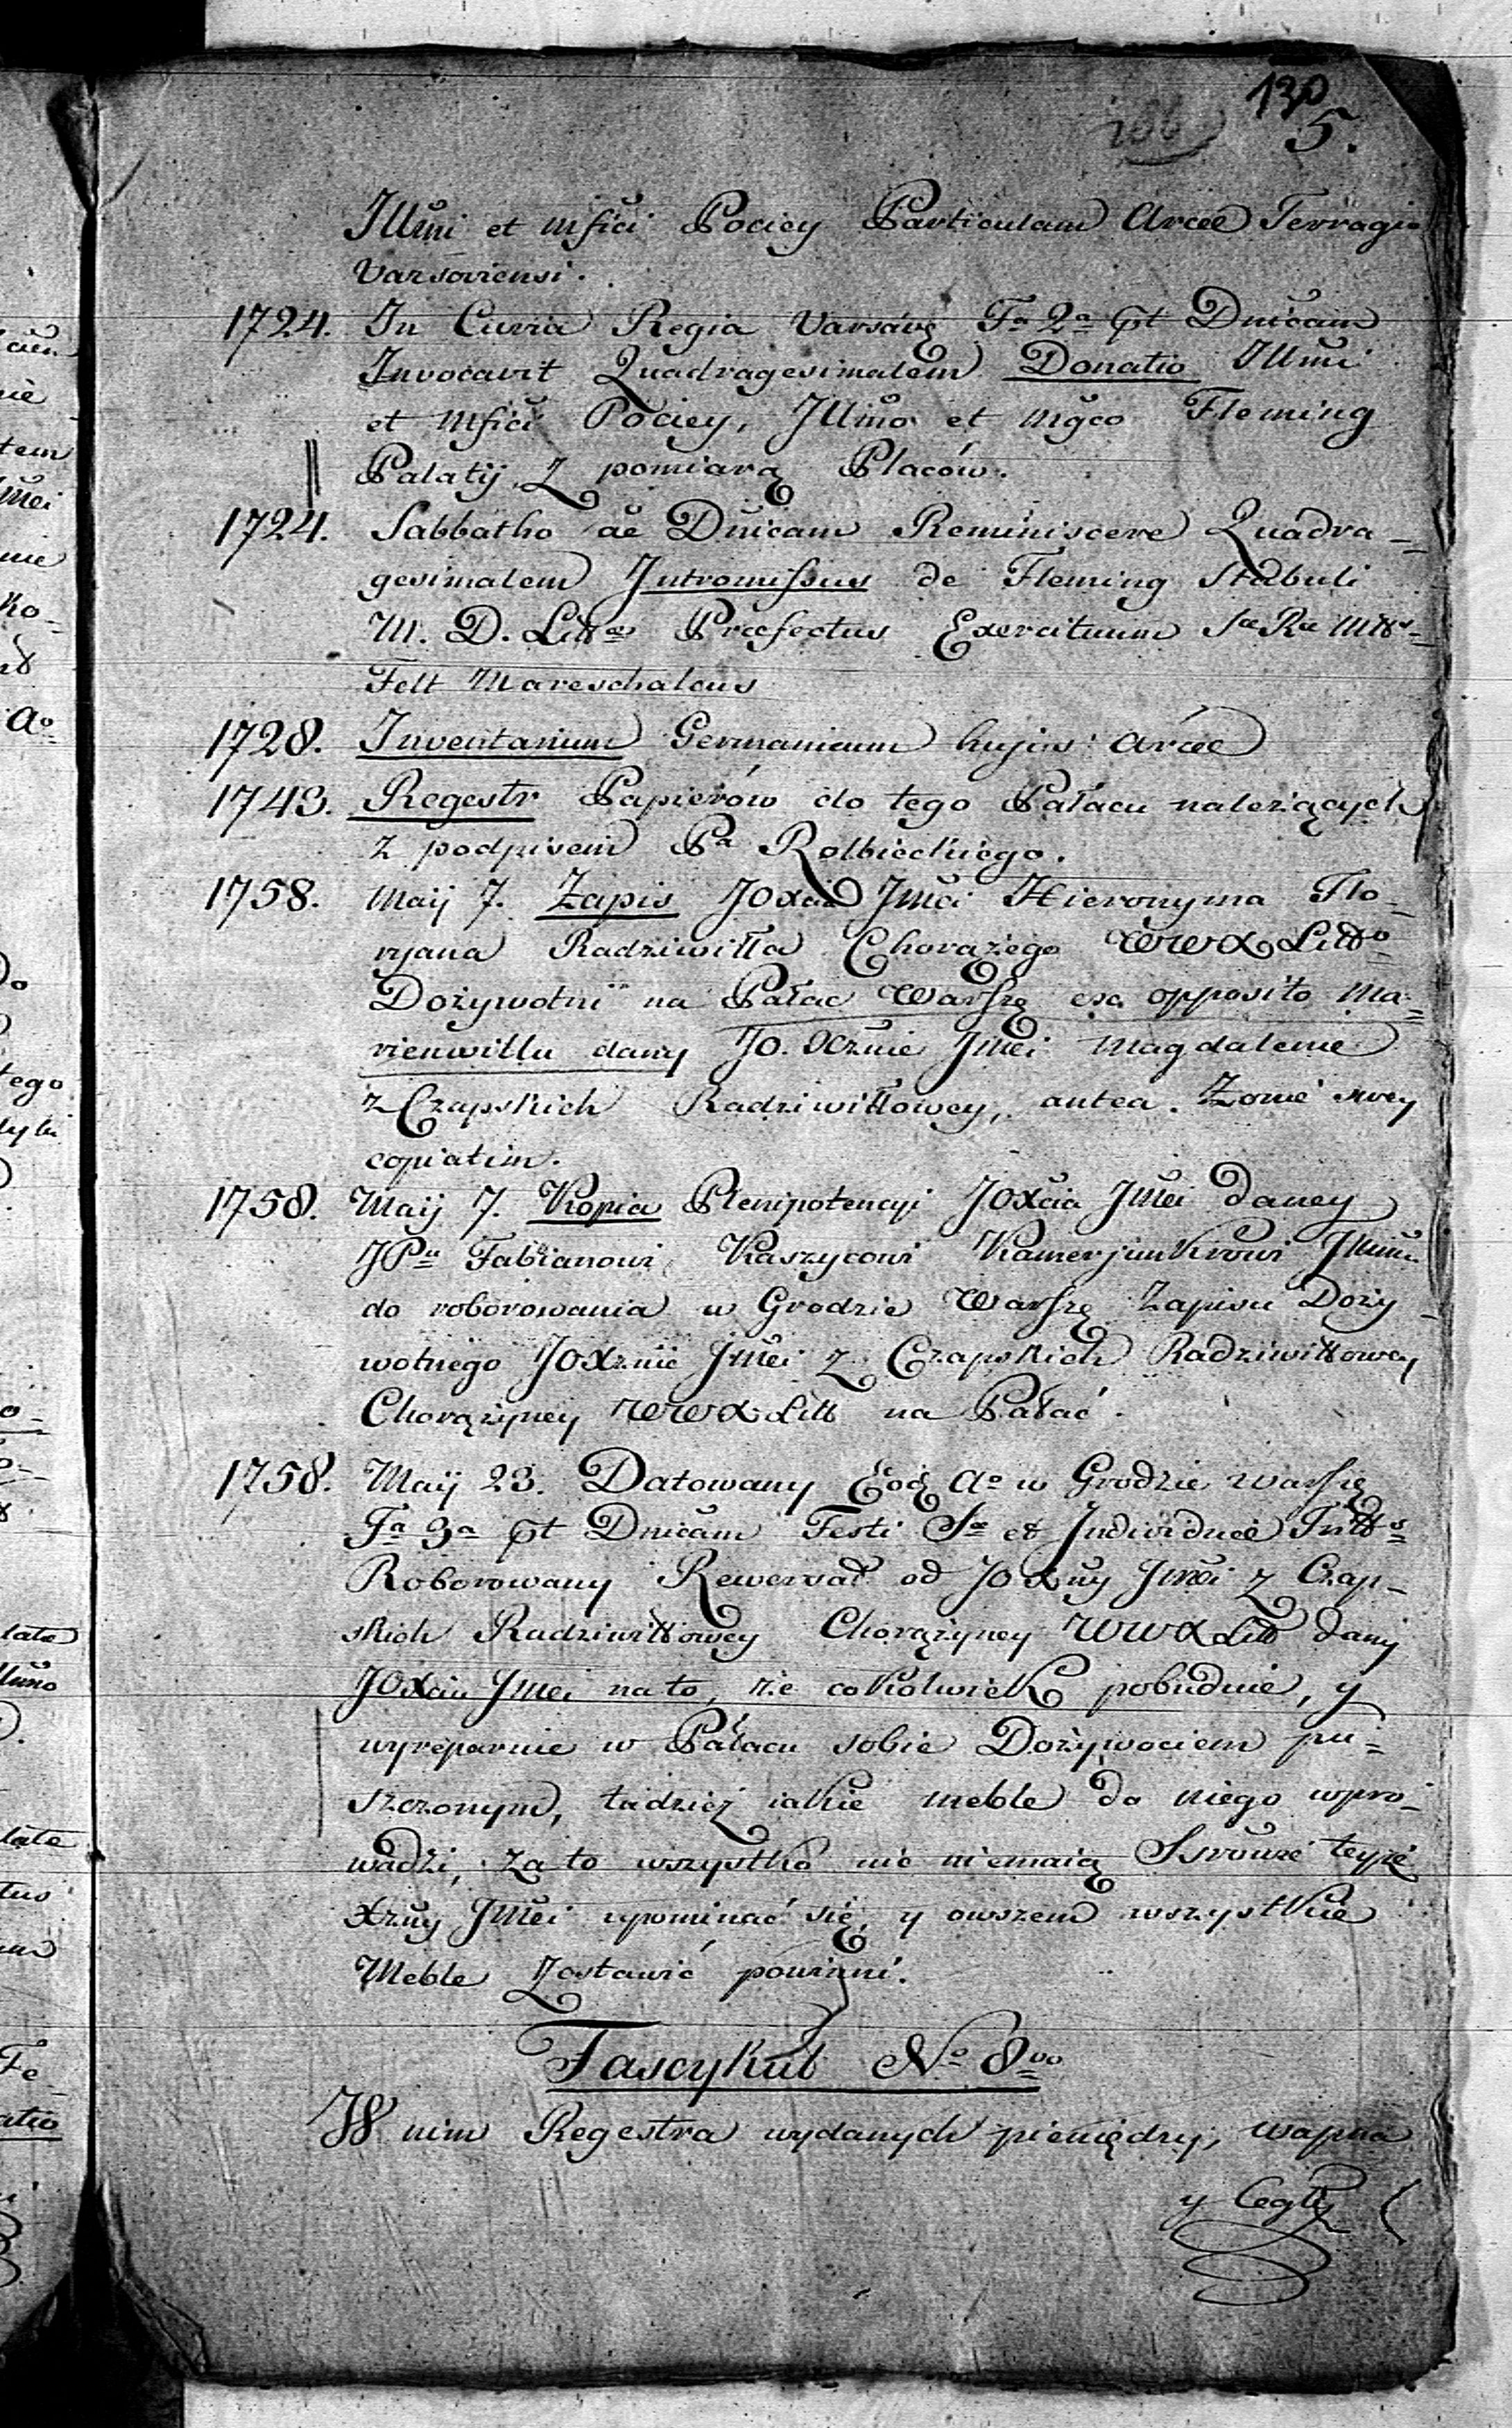 130
106
5.
Illmi et mfici Pociey Particulam Arcee Terragio
Varsoviensi.
1724. In Curia Regia Varsavę Fa 2a pt Dnicam
Invocavit Quadragesimalem Donatio Illmi
et Mfici Pociey, Illmo et mgco Fleming
Palatij z pomiarą Placów.
1724. Sabbatho ae Dnicam Reminiscere Quadra-
gesimalem Intromissus de Fleming Stabuli
M. D. Litt Præfectus Exercituum
Felt Mareschalcus
1728. Inventarium Germanicum hujus Arcee
1743. Regestr Papierów do tego Pałacu należących
z podpisem Pa Rolbieckiego.
1758. Maij 7. Zapis JOxcia Jmci Hieronyma Flo-
ryana Radziwiłła Chorążego WWX Litto
Dożywotni na Pałac Warszę ex opposito Ma-
rienwillu dany JO. Xcznie Jmci Magdalenie
z Czapskich Radziwiłłowey, antea. Żonie swey
copiatim.
1758. Maij 7. Kopia Plenipotencyi JOxcia Jmci daney
JPu Fabianowi Kaszycowi Kamerjunkrowi
do roborowania w Grodzie Warszę Zapisu Doży
wotnego JOXznie Jmci z Czapskich Radziwiłłowey
Chorążyney WWX Litt na Pałac.
1758. Maij 23. Datowany Eoḍ Ao w Grodzie Warszę
Fa 3a pt Dnicam Festi Sæ et Individuæ Tritts
Roborowany Rewersał od JOXny Jmci z Czap-
skich Radziwiłłowey Chorążyney WWX Litt dany
JOxciu Jmci na to, że cokolwiek pobuduie, y
wyreparuie w Pałacu sobie Dożywociem pu-
szczonym, tudzież iakie meble do niego wpro-
wadzi, za to wszystko nic niemaią Ssrowie teyże
Xzny Jmci upominać się, y owszem wszystkie
Meble zostawić powinni.
Fascykuł No 8vo
W nim Regestra wydanych pieniędzy, wapna
y Cegły